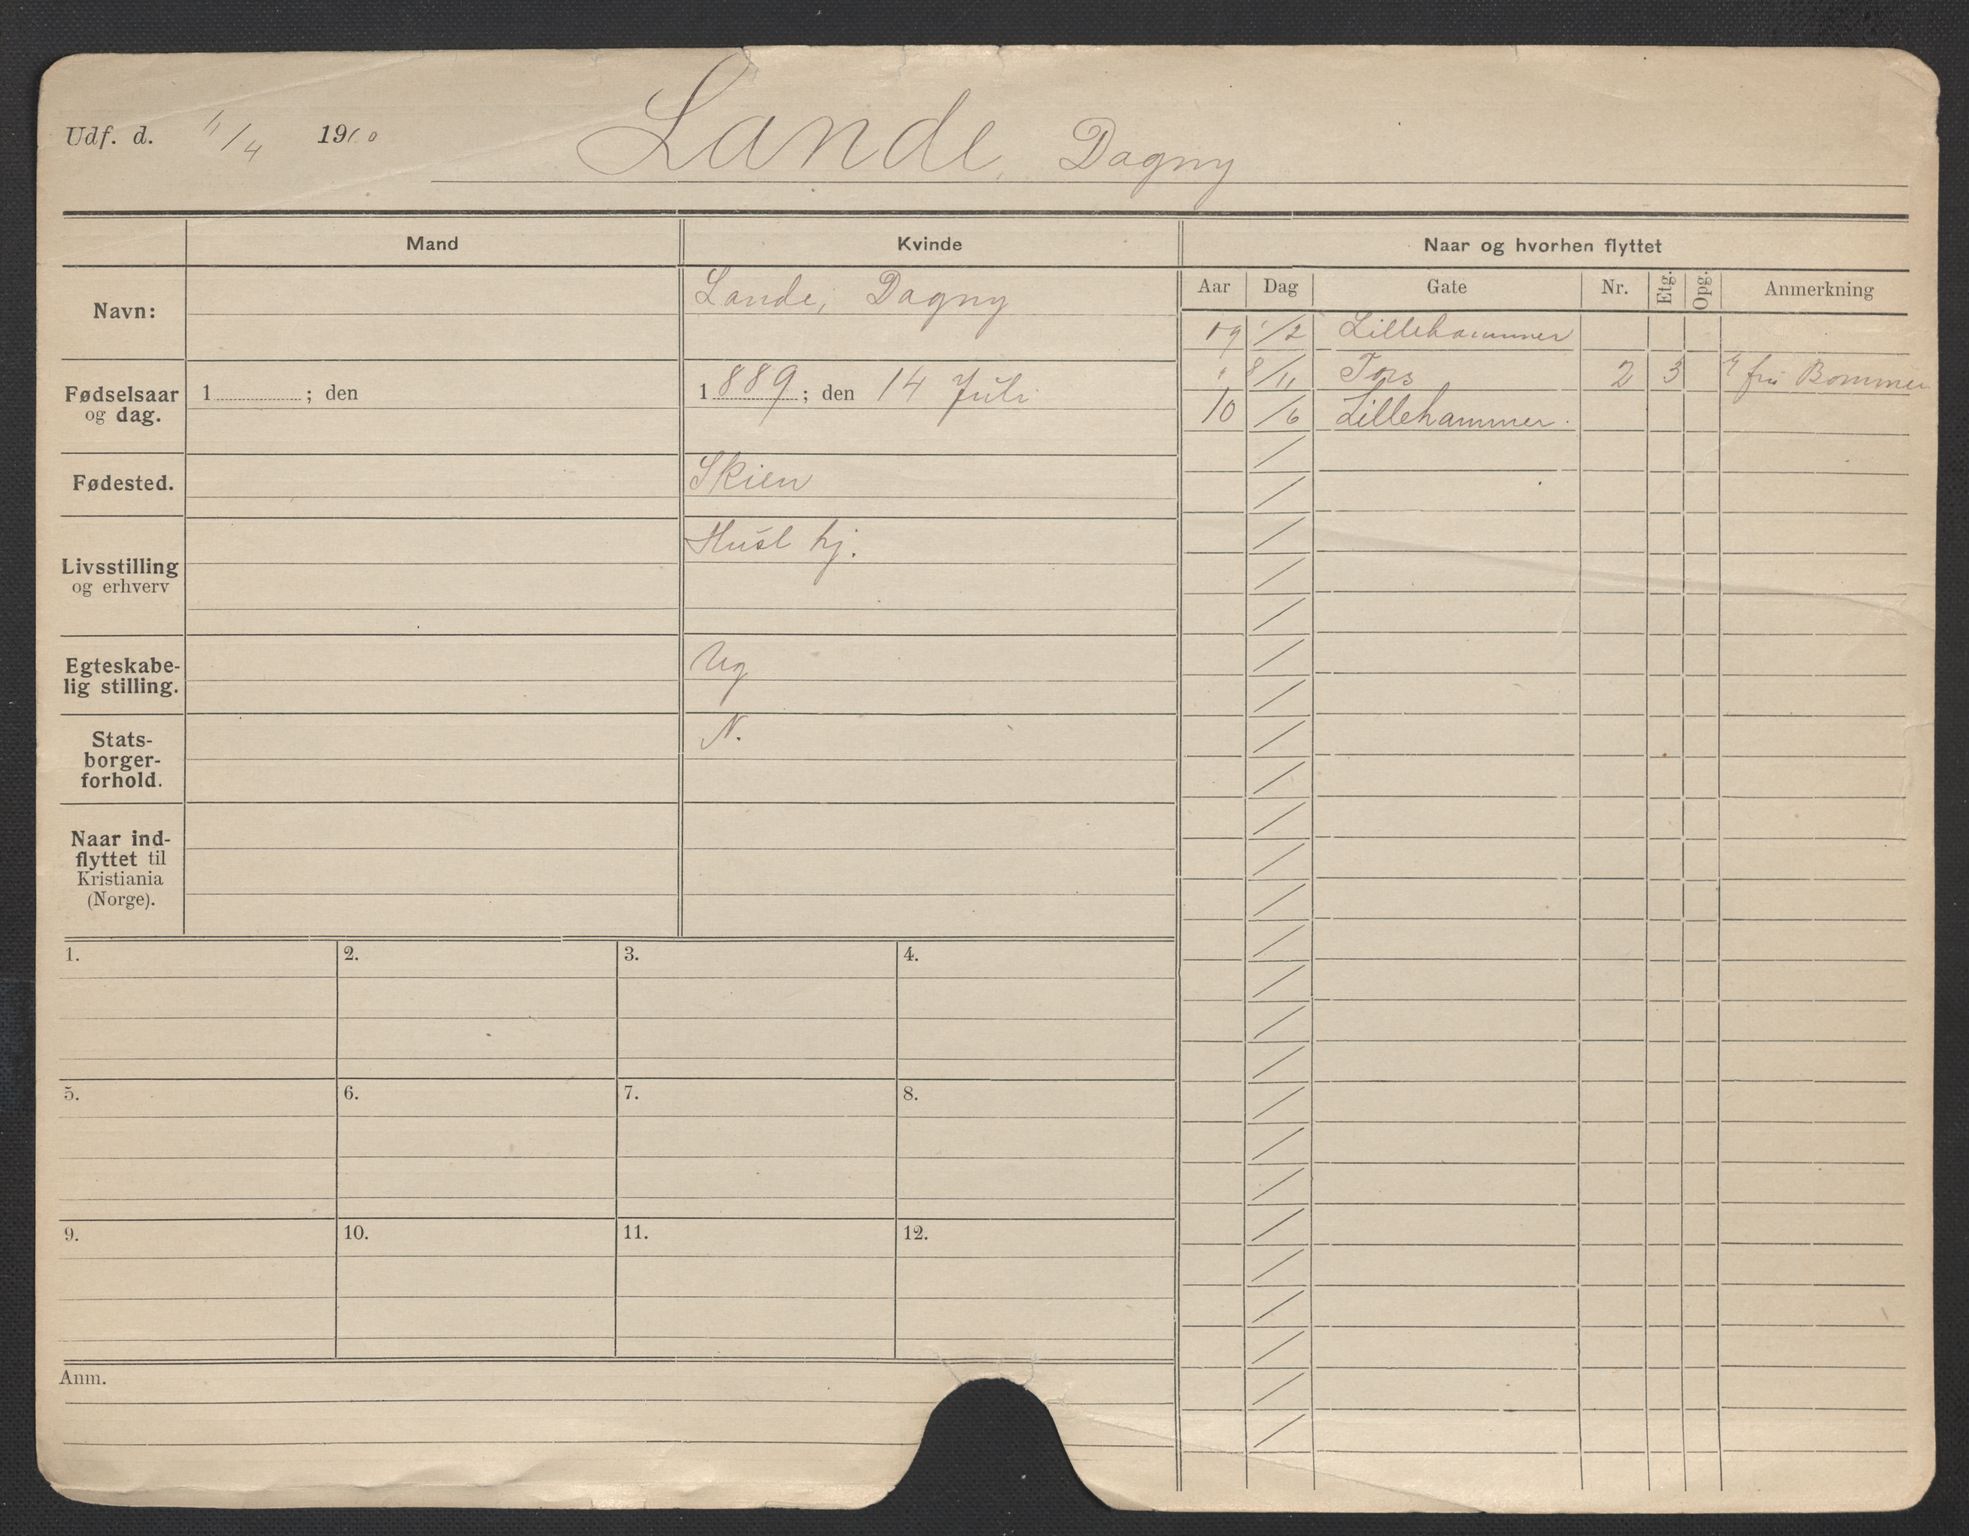 Udf. d. /4 19
Lande, Dagny
Mand
Kvinde
Naar og hvorhen flyttet
Navn:
Lande, Dagny
Fødselsaar
og dag.
1 ; den
1889; den 14 Juli
Fødested.
Skien
Livsstilling
og erhverv
Husl hj.
Egteskabe-
lig stilling.
Ug
Stats-
borger-
forhold.
N.
Naar ind-
flyttet til
Kristiania
(Norge).
1.
2.
3.
4.
5.
6.
7.
8.
9.
10.
11.
12.
Anm.
Aar Dag Gate Nr. Etg. Opg. Anmerkning
09 1/2 Lillehammer
" 8/11 Tors 2 3 fru Bommen
10 /6 Lillehammer.